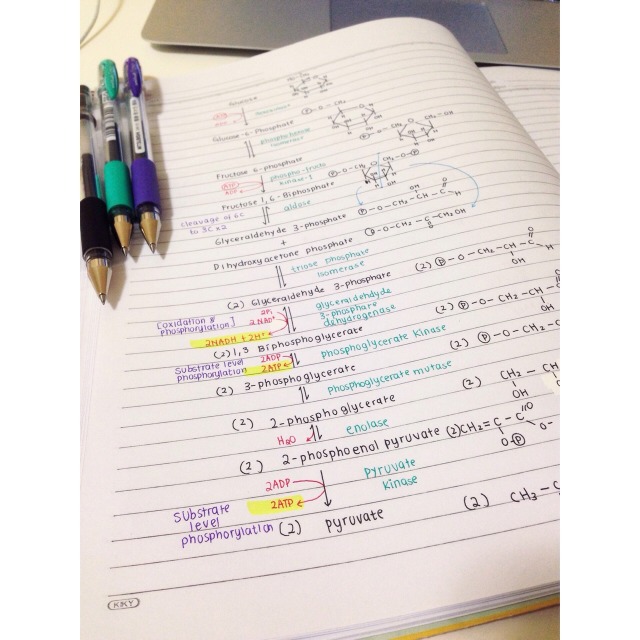 Glucose
Glucose-6-Phosphate
phosphohexose
isomerase
Fructose 6-phosphate
ATP
ADP
phospho-fructo
kinase-1
Fructose 1,6-Biphosphate
cleavage of 6C
to 3C x2
aldose
Glyceraldehyde 3-phosphate
+
Dihydroxyacetone phosphate
triose phosphate
isomerase
(2) Glyceraldehyde 3-phosphate
[oxidation &
phosphorylation]
2Pi
2NAD+
2NADH + 2H+
glyceraldehdyde
3-phosphate
dehydrogenase
(2) 1,3 Biphosphoglycerate
Substrate level
phosphorylation
2ADP
2ATP
phosphoglycerate kinase
(2) 3-phosphoglycerate
phosphoglycerate mutase
(2) 2-phosphoglycerate
H2O
enolase
(2) 2-phosphoenol pyruvate (2) CH2=C-C=O
O-P O-
2ADP
2ATP
pyruvate
kinase
substrate
level
phosphorylation
(2) pyruvate (2) CH3-C
KKY